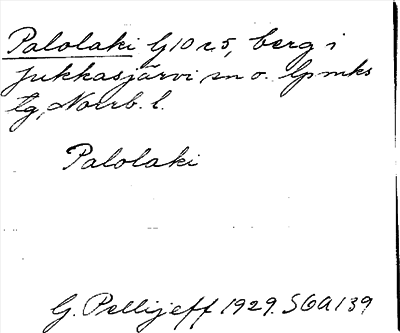 Palolaki G10 c5, berg i
Jukkasjärvi sn o. Lpmks
tg, Norrb. l.
Palolaki
G. Pellijeff 1929. SOA 139